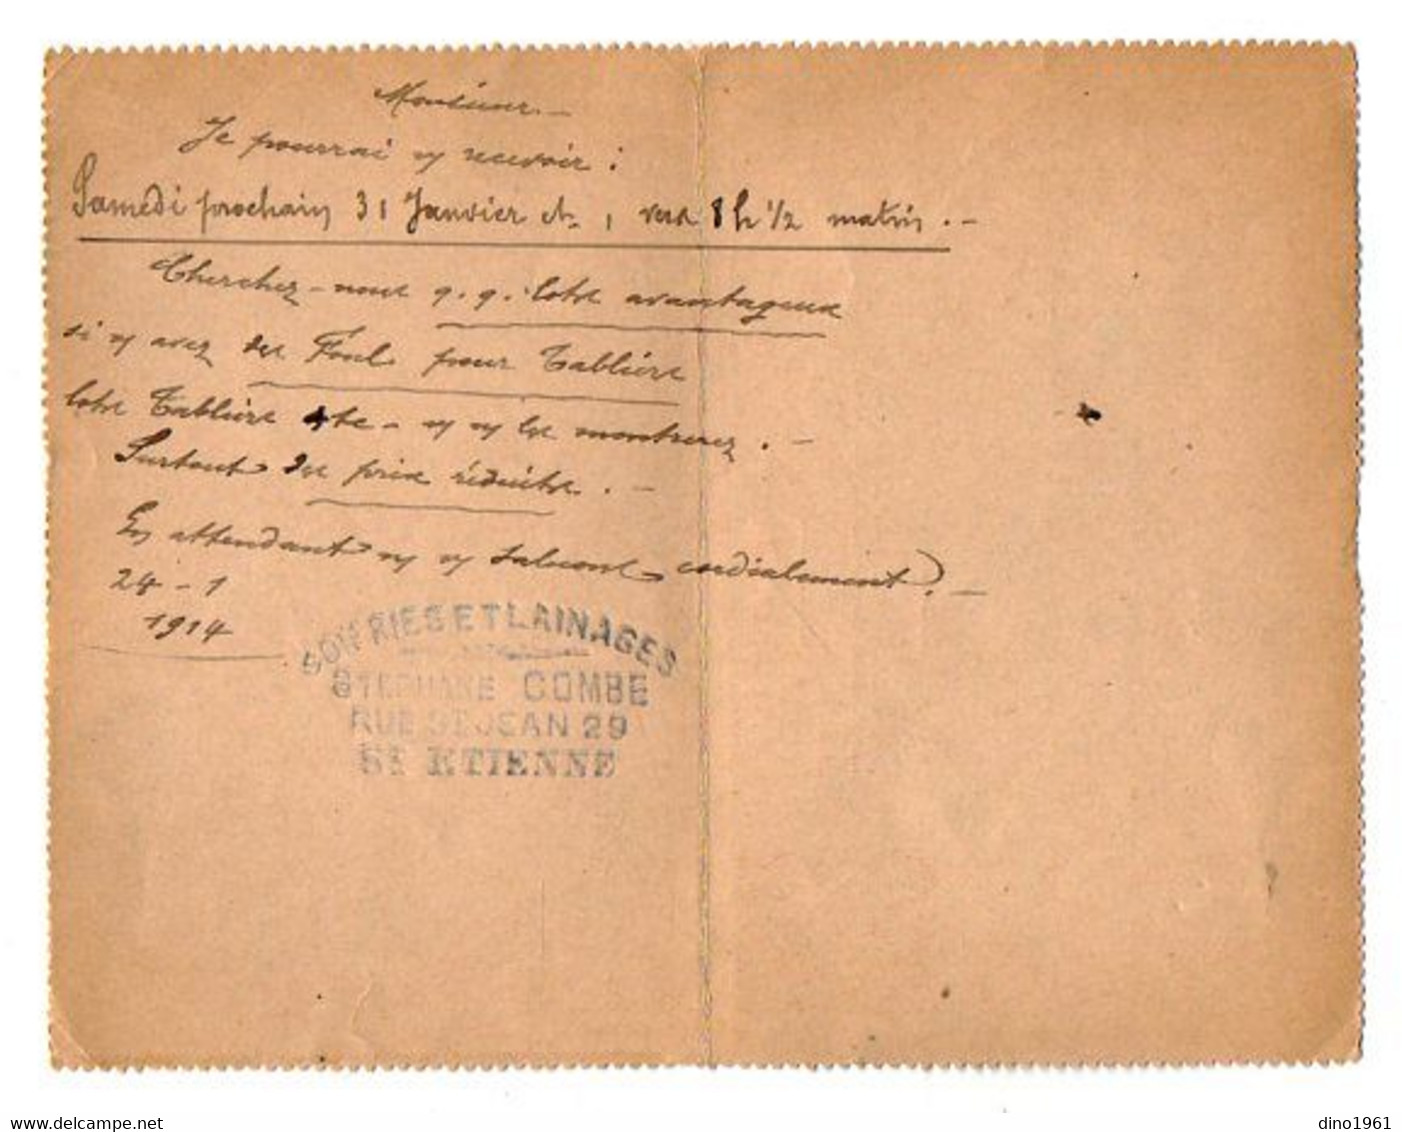 Monsieur. —
Je pourrai vs recevoir :
Samedi prochain 31 Janvier ct, vers 8 h 1/2 matin. —
Cherchez-nous q.q. lots avantageux
si vs avez des Foul. pour Tabliers
lots Tabliers &te - vs ns les montrerez. —
Surtout des prix réduits. —
En attendant ns vs saluons cordialement. —
24 - 1
1914
SOIERIES ET LAINAGES
STEPHANE COMBE
RUE ST JEAN 29
ST ETIENNE
dino1961